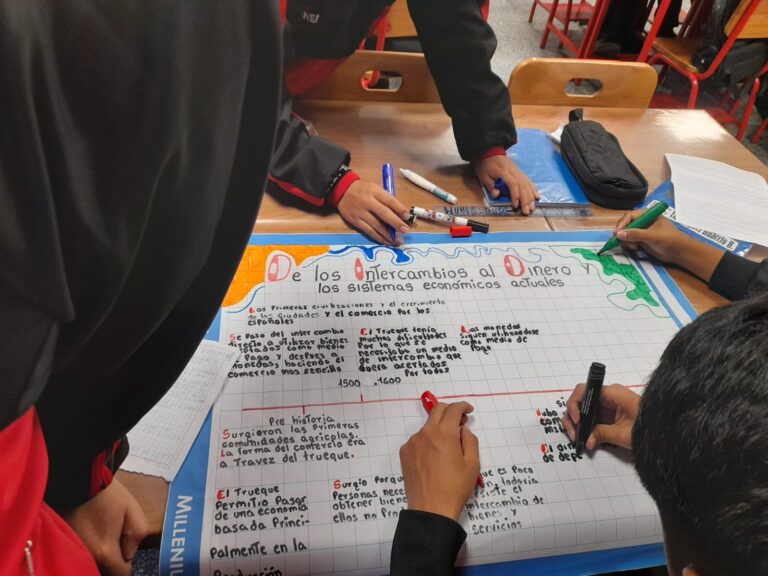 De los Intercambios al Dinero y
los sistemas económicos actuales
Las primeras civilizaciones y el crecimiento
de las ciudades y el comercio por los
españoles
Se paso del intercambio
directo a utilizar bienes
como medio
Pago y despues a
monedas, haciendo el
comercio mas sencillo
El Trueque tenía
muchas dificultades
Por lo que se
necesitaba un medio
de intercambio que
fuera
Por todos
Las monedas
siguen utilizandose
como medio de
Pago
1500 1600
Pre historia
Surgieron las Primeras
comunidades agricolas.
La forma del comercio era
a Travez del trueque.
si
Hubo
com
mis
El din
de dep
El Trueque
Permitio Pasar
de una economía
basada Princi-
Palmente en la
Producción
Surgio Porqu
Personas nece
obtener bien
ellos no Prod
que es Poco
todavía
siste el
intercambio de
bienes y
servicios
MILLENIU